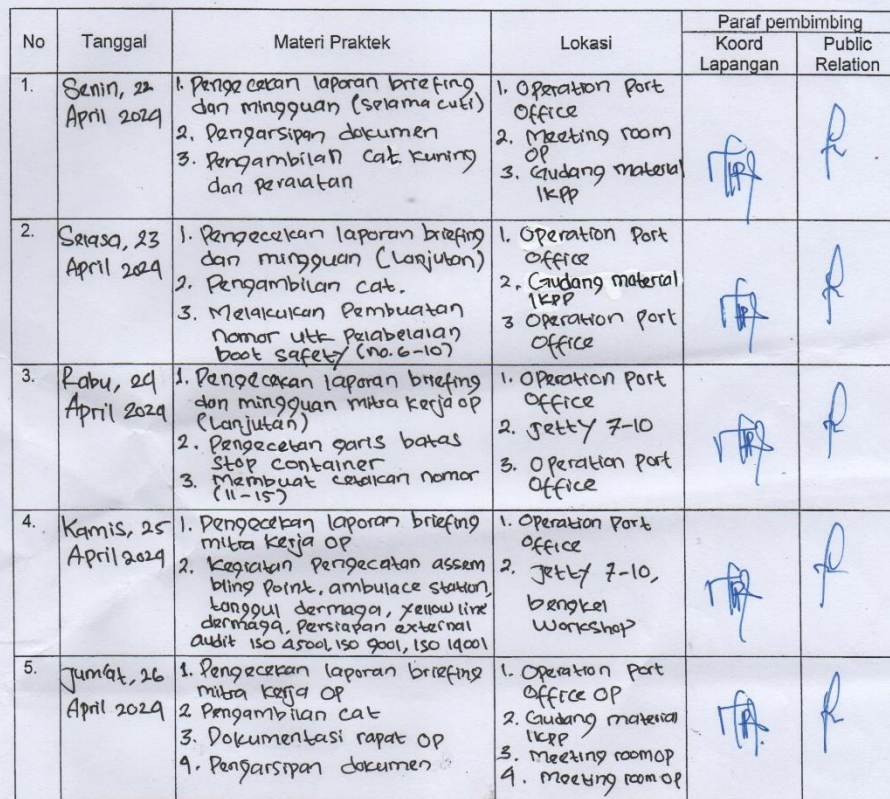 No Tanggal Materi Praktek Lokasi Paraf pembimbing
Koord Lapangan Public Relation
1.
Senin, 22
April 2024
1. Pengecekan laporan briefing
dan mingguan (selama cuti)
2. Pengarsipan dokumen
3. Pengambilan cat kuning
dan peralatan
1. Operation Port
Office
2. Meeting room
OP
3. Gudang material
IKPP
2.
Selasa, 23
April 2024
1. Pengecekan laporan briefing
dan mingguan (Lanjutan)
2. Pengambilan cat.
3. Melakukan Pembuatan
nomor utk Pelabelan
boot safety (no. 6-10)
1. Operation Port
Office
2. Gudang material
IKPP
3 Operation Port
Office
3.
Rabu, 24
April 2024
1. Pengecekan laporan briefing
dan mingguan mitra kerja OP
(Lanjutan)
2. Pengecetan garis batas
Stop container
3. Membuat cetakan nomor
(11-15)
1. Operation Port
Office
2. Jetty 7-10
3. Operation Port
Office
4.
Kamis, 25
April 2024
1. Pengecekan laporan briefing
mitra kerja OP
2. Kegiatan Pengecatan assem
bling Point, ambulace station,
tanggul dermaga, yellow line
dermaga, Persiapan external
audit ISO 45001, ISO 9001, ISO 14001
1. Operation Port
Office
2. Jetty 7-10,
bengkel
Workshop
5.
Jum'at, 26
April 2024
1. Pengecekan laporan briefing
mitra kerja OP
2 Pengambilan cat
3. Dokumentasi rapat OP
4. Pengarsipan dokumen
1. Operation Port
Office OP
2. Gudang material
IKPP
3. Meeting room OP
4. Meeting room OP